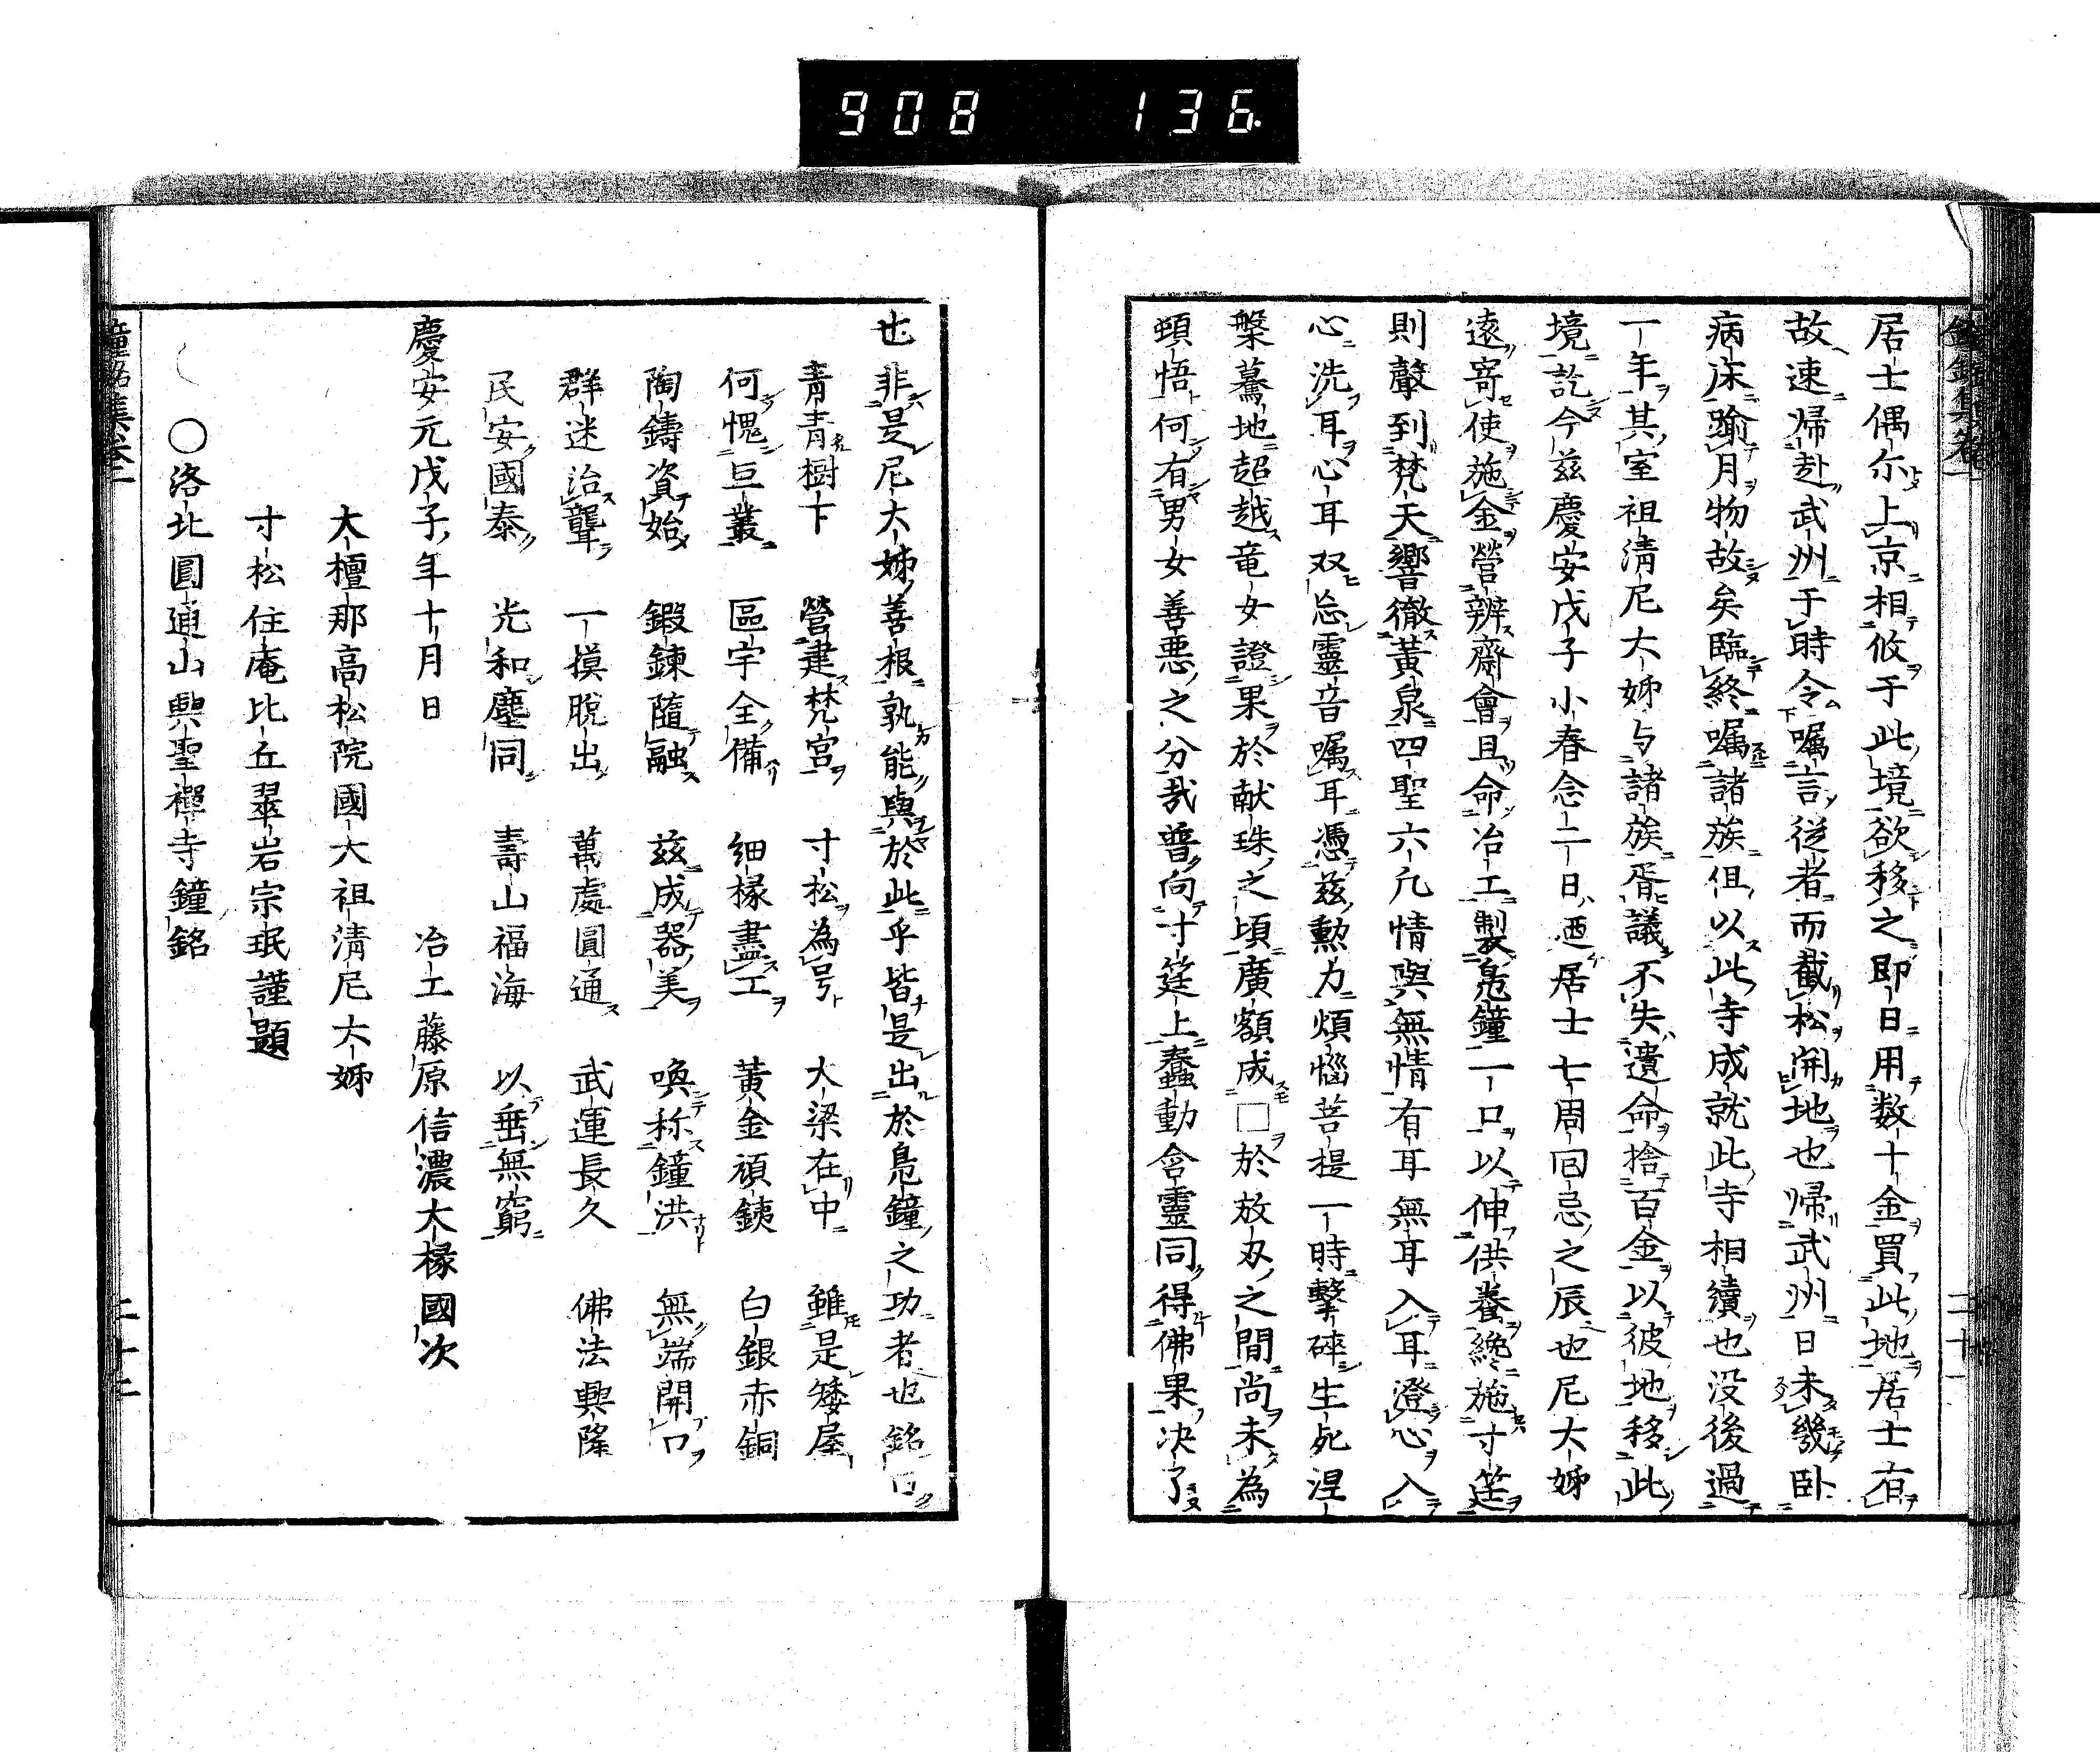 908 136
居士偶尓上京相攸于此境欲移之即日用数十金買此地居士有
故速帰赴武州于時令嘱言従者而截松開地也帰武州日未幾卧
病床踰月物故矣臨終嘱諸族但以此寺成就此寺相續也没後過
一年其室祖清尼大姉与諸族胥議不失遺命捨百金以彼地移此
境訖今茲慶安戊子小春念二日迺居士七周囘忌之辰也尼大姉
遠寄使施金營辨齋會且命冶工製鳬鐘一口以伸供養纔施寸筳
則聲到梵天響徹黃泉四聖六凡情與無情有耳無耳入耳澄心入
心洗耳心耳双忘靈音嘱耳憑茲勲力煩惱菩提一時擊碎生死涅
槃驀地超越竜女證果於献珠之頃廣額成□於放刄之間尚未為
頓悟何有男女善悪之分哉普向寸筳上蠢動含靈同得佛果决了
也非是尼大姉善根孰能與於此乎皆是出於鳬鐘之功者也銘曰
青青樹下 營建梵宮 寸松為号 大梁在中 雖是矮屋
何愧巨叢 區宇全備 細椽盡工 黃金頑銕 白銀赤銅
陶鑄資始 鍜錬隨融 茲成器美 喚称鐘洪 無端開口
群迷治聾 一摸脫出 萬處圓通 武運長久 佛法興隆
民安國泰 光和塵同 壽山福海 以垂無窮
慶安元戊子年十月日 冶工藤原信濃大椽國次
大檀那高松院國大祖清尼大姉
寸松住庵比丘翠岩宗珉謹題
○洛北圓通山興聖禪寺鐘銘
鐘銘集卷二 二十二